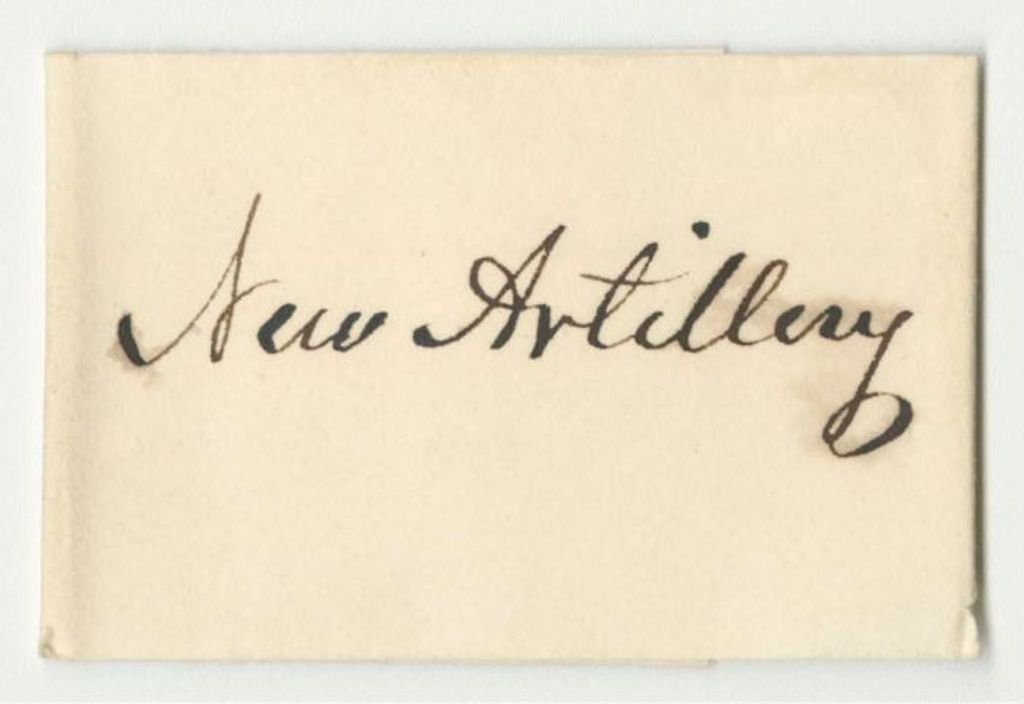 New Artillery